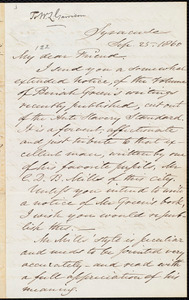 To W L Garrison
Syracuse
Sep. 25th 1860
122
My dear Friend,
I send you a somewhat
extended notice of the Volume
of Beriah Green's writings
recently published, cut out
of the Anti Slavery Standard.
It is a fervent, affectionate
and just tribute to that ex-
cellent man, written by one
of his favorite pupils
of this City.
Unless you intend to write
a notice of Mr Green's book,
I wish you would re-pub-
lish this.
Mr. Mills' style is peculiar
and must be printed very
accurately, and read with
a full appreciation of his
meaning.